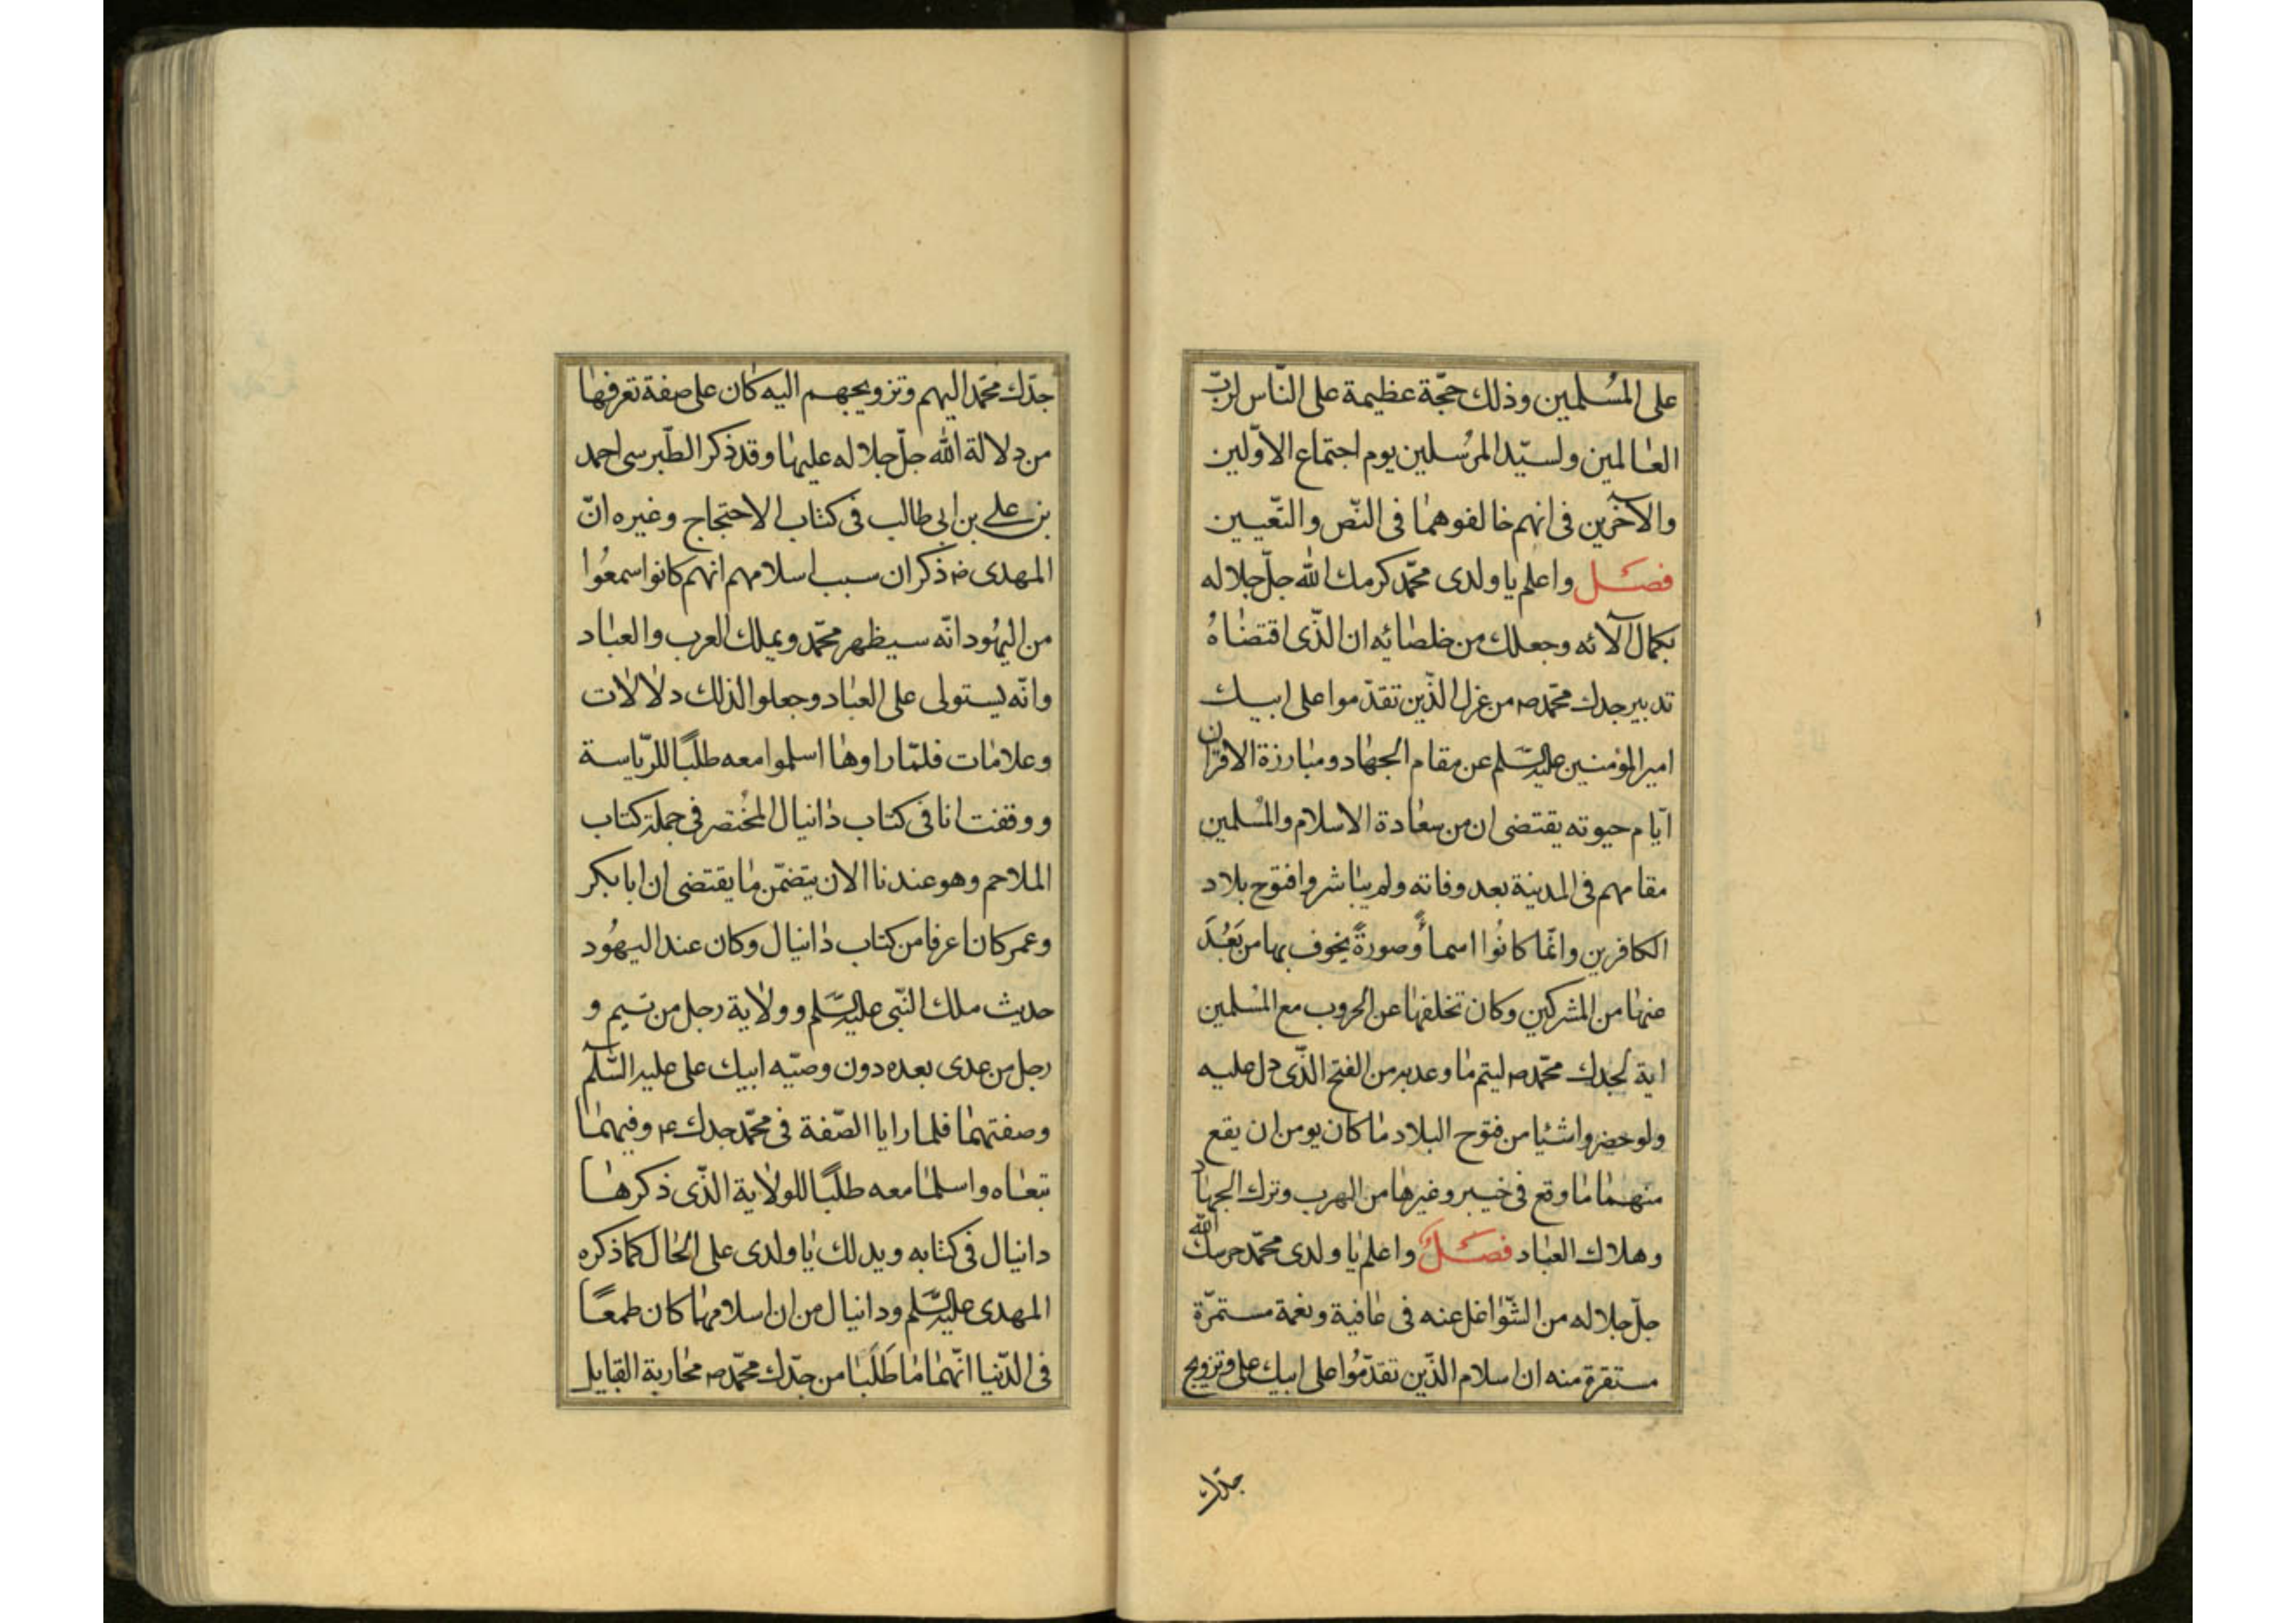 على المسُلمين وذلك حجّة عظيمة على النّاس لربّ
العٰالمين ولسيّد المرسُلين يوم اجتماع الاوّلين
والآخرين فى انهم خالفوهمٰا فى النّص والتّعيين
فصل واعلم يا ولدى محمّد كرمك الله جلّ جلاله
بكمال آلائه وجعلك من خلصٰائه ان الذّى اقتضٰاهُ
تدبير جدك محمّد ص من عزل الذّين تقدّموا على ابيك
امير المؤمنين عليه السّلم عن مقام الجهٰاد ومبٰارزة الاقران
ايّام حيوته يقتضى ان من سعٰادة الاسلام والمسُلمين
مقامهم فى المدينة بعد وفاته ولم يبٰاشروا فتوح بلاد
الكافرين وانّمٰا كانُوا اسماً وصورةً يخوف بها من بَعُدَ
عنهٰا من المشركين وكان تخلفهٰا عن الحروب مع المسُلمين
اية لجدك محمّد ص ليتم مٰا وعد به من الفتح الذّى دل عليه
ولو حضروا شئيا من فتوح البلاد مٰا كان يومن ان يقع
منهمٰا مٰا وقع فى خيبر وغيرهٰا من الهرب وترك الجهٰاد
وهلاك العبٰاد فصلٌ واعلم يٰا ولدى محمّد حرسك الله
جلّ جلاله من الشّوٰاغل عنه فى عٰافية ونعمة مستمرّة
مستقرة منه ان اسلام الذّين تقدّمُوا على ابيك على وتزويج
جدّك
جدّك محمّد اليهم وتزويجهم اليه كان على صفة تعرفهٰا
من دلالة الله جلّ جلاله عليهٰا وقد ذكر الطّبرسى احمد
بن على بن ابى طالب فى كتاب الاحتجاج وغيره انّ
المهدى ع ذكر ان سبب اسلامهم انهم كانوا سمعُوا
من اليهُود انّه سيظهر محمّد ويملك العرب والعبٰاد
وانّه يستولى على العبٰاد وجعلوا لذلك دلٰالٰات
وعلامٰات فلمّا راوهٰا اسلموا معه طلبًا للرّياسة
ووقفت انا فى كتاب دٰانيال المخُتصر فى جملة كتاب
الملاحم وهو عندنا الان يتضمّن مٰا يقتضى ان ابا بكر
وعمر كان اعرفا من كتاب دٰانيال وكان عند اليهُود
حديث ملك النّبى عليه السّلم وولٰاية رجل من تيم و
رجل من عدى بعده دون وصيّه ابيك على عليه السّلم
وصفتهمٰا فلما رايا الصّفة فى محمّد جدك ع وفيهمٰا
تبعٰاه واسلمٰا معه طلبًا للولٰاية الذّى ذكرهٰا
دانيال فى كتابه ويدلك يٰا ولدى على الحٰال كما ذكره
المهدى عليه السّلم ودانيال من ان اسلامهٰا كان طمعًا
فى الدّنيا انّهمٰا مٰا طَلَبٰا من جدّك محمّد ص محٰاربة القبايل